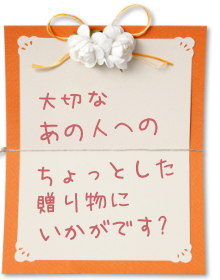 大切な
あの人への
ちょっとした
贈り物に
いかがです?